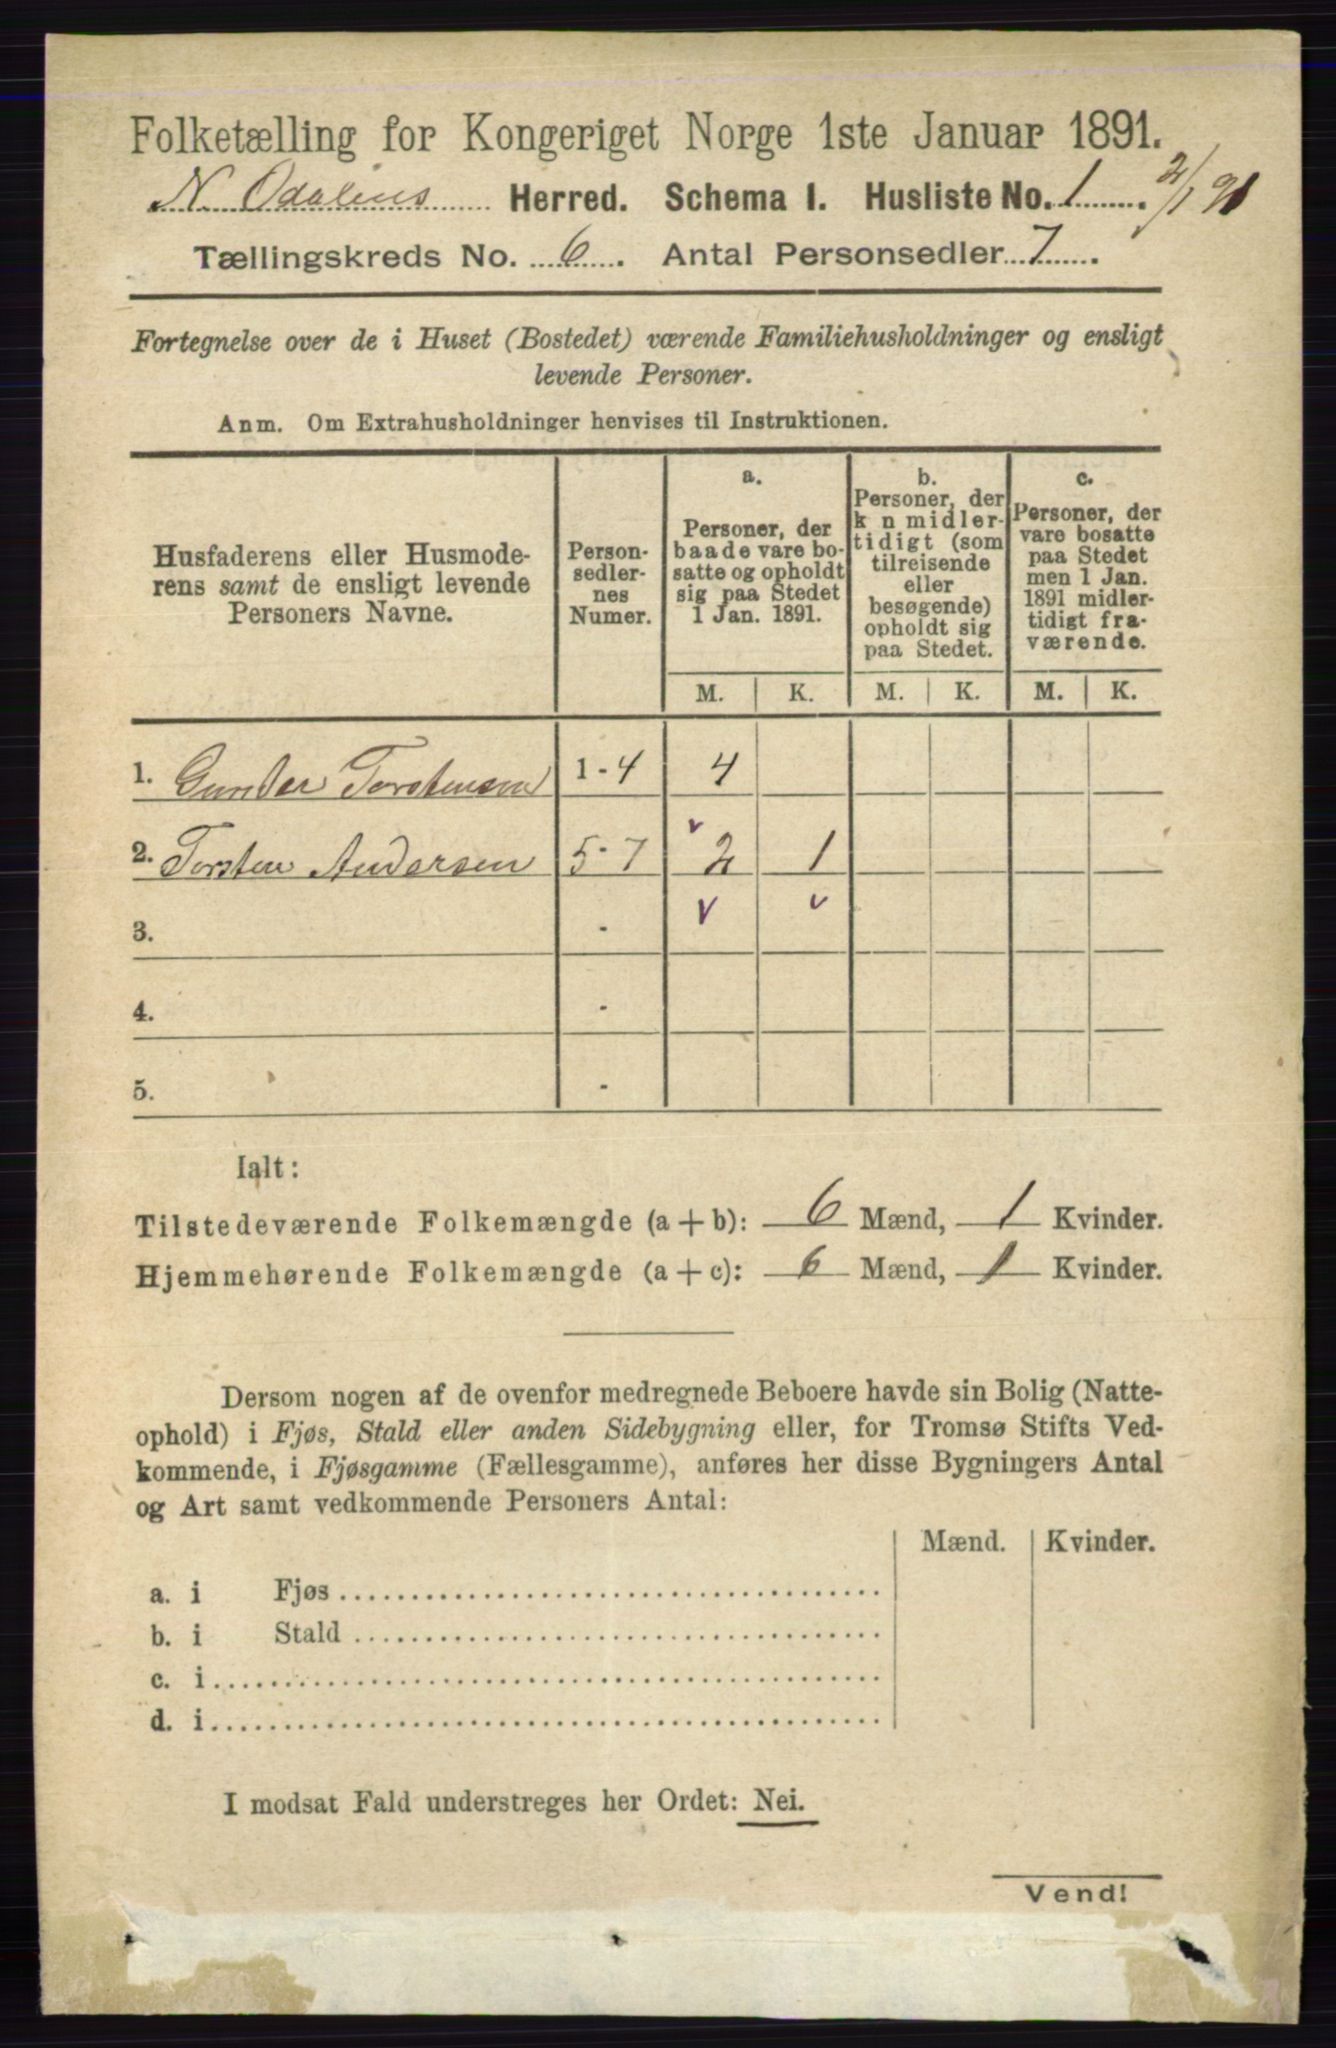 Folketælling for Kongeriget Norge 1ste Januar 1891.
N. Odalens Herred. Schema I. Husliste No. 1 2/1 91
Tællingskreds No. 6. Antal Personsedler 7.
Fortegnelse over de i Huset (Bostedet) værende Familiehusholdninger og ensligt
levende Personer.
Anm. Om Extrahusholdninger henvises til Instruktionen.
Husfaderens eller Husmode-
rens samt de ensligt levende
Personers Navne.
Person-
sedler-
nes
Numer.
a.
Personer, der
baade vare bo-
satte og opholdt
sig paa Stedet
1 Jan. 1891.
b.
Personer, der
k n midler-
tidigt (som
tilreisende
eller
besøgende)
opholdt sig
paa Stedet.
c.
Personer, der
vare bosatte
paa Stedet
men 1 Jan.
1891 midler-
tidigt fra-
værende.
M. K. M. K. M. K.
1. Gunder Torstensen 1-4 4
2. Torsten Andersen 5-7 v 2 1
3. - v v
4. -
5. -
Ialt:
Tilstedeværende Folkemængde (a + b): 6 Mænd, 1 Kvinder.
Hjemmehørende Folkemængde (a + c): 6 Mænd, 1 Kvinder.
Dersom nogen af de ovenfor medregnede Beboere havde sin Bolig (Natte-
ophold) i Fjøs, Stald eller anden Sidebygning eller, for Tromsø Stifts Ved-
kommende, i Fjøsgamme (Fællesgamme), anføres her disse Bygningers Antal
og Art samt vedkommende Personers Antal:
Mænd. Kvinder.
a. i Fjøs
b. i Stald
c. i
d. i
I modsat Fald understreges her Ordet: Nei.
Vend!